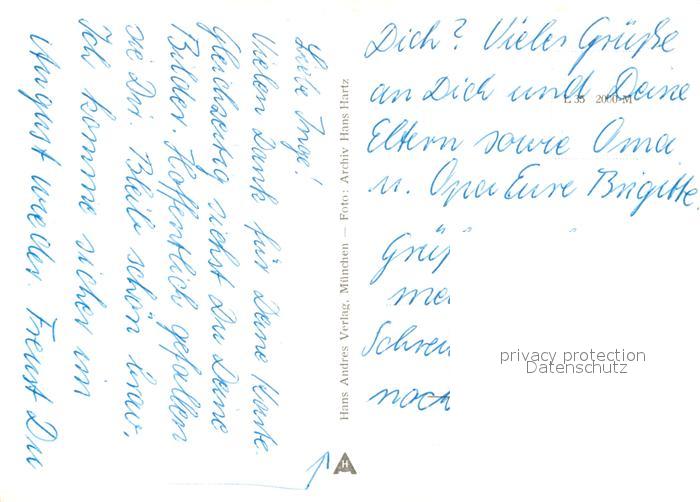 Liebe Inge!
Vielen Dank für Deine Karte.
Gleichzeitig siehst Du Deine
Bilder. Hoffentlich gefallen
sie Dir. Bleib schön brav,
Ich komme sicher im
August wieder. Freust Du
Dich? Viele Grüße
an Dich und Deine
Eltern sowie Oma
u. Opa Eure Brigitte.
Grüß
Schreib
noch
Hans Andres Verlag, München — Foto: Archiv Hans Hartz
L 35 2000 M
H
privacy protection
Datenschutz